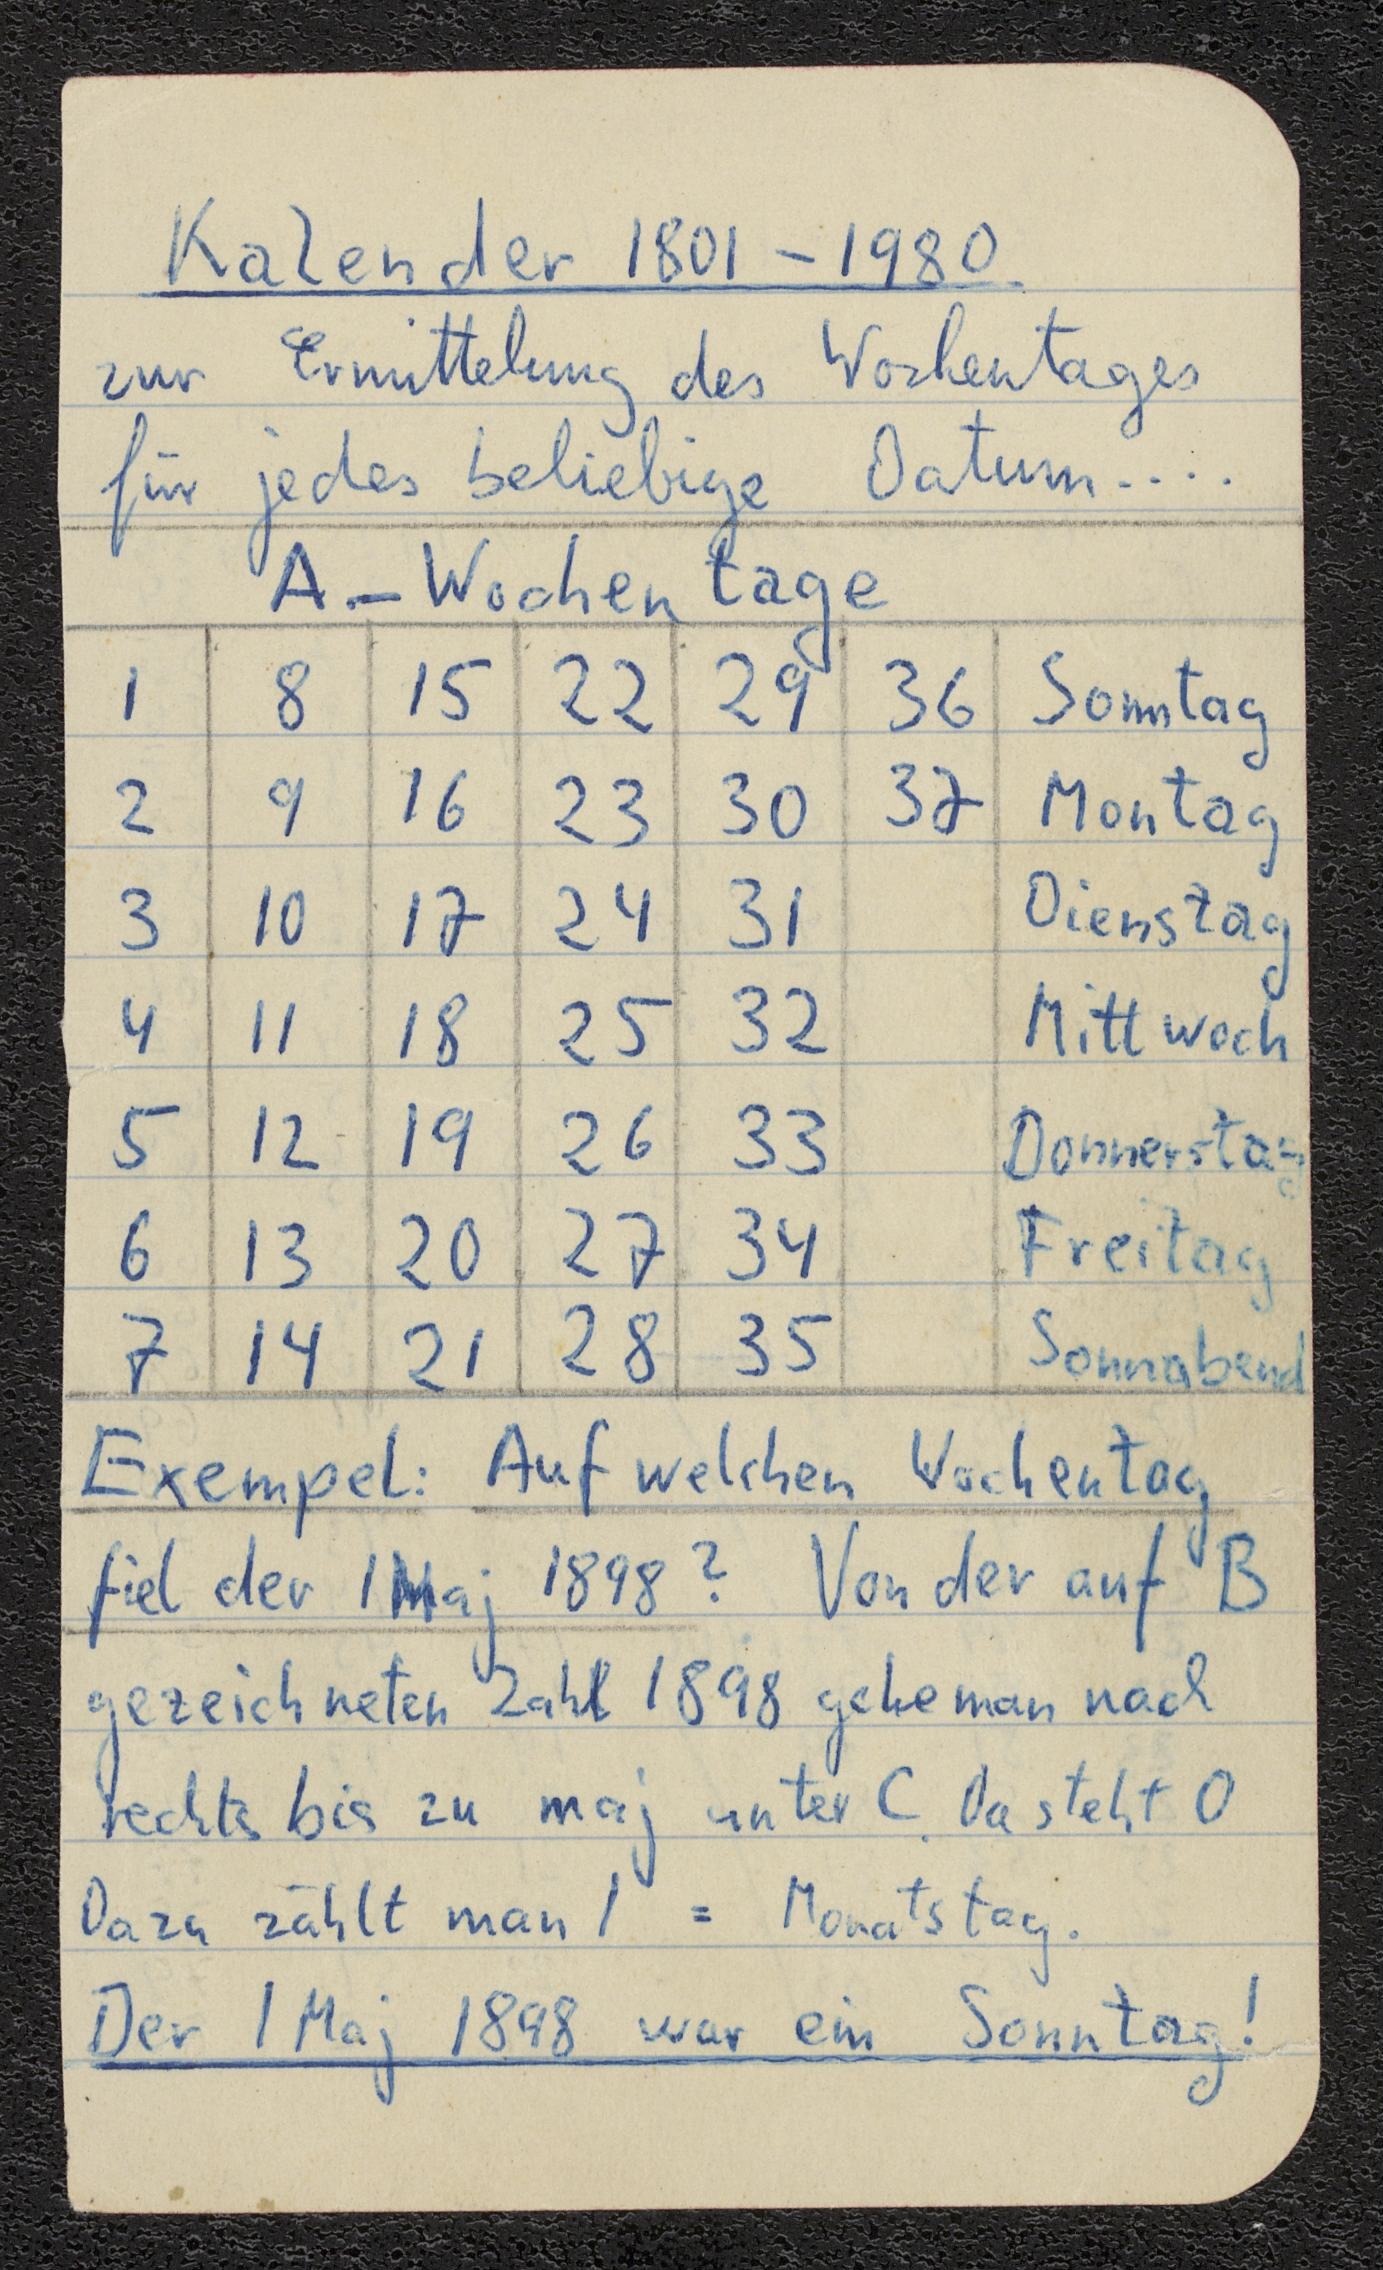 Kalender 1801 - 1980
zur Ermittelung des Wochentages
für jedes beliebige Datum....
A - Wochentage
1 8 15 22 29 36 Sonntag
2 9 16 23 30 37 Montag
3 10 17 24 31 Dienstag
4 11 18 25 32 Mittwoch
5 12 19 26 33 Donnerstag
6 13 20 27 34 Freitag
7 14 21 28 35 Sonnabend
Exempel: Auf welchen Wochentag
fiel der 1 Maj 1898? Von der auf B
gezeichneten Zahl 1898 gehe man nach
rechts bis zu maj unter C. Da steht 0
Dazu zählt man 1 = Monatstag.
Der 1 Maj 1898 war ein Sonntag!